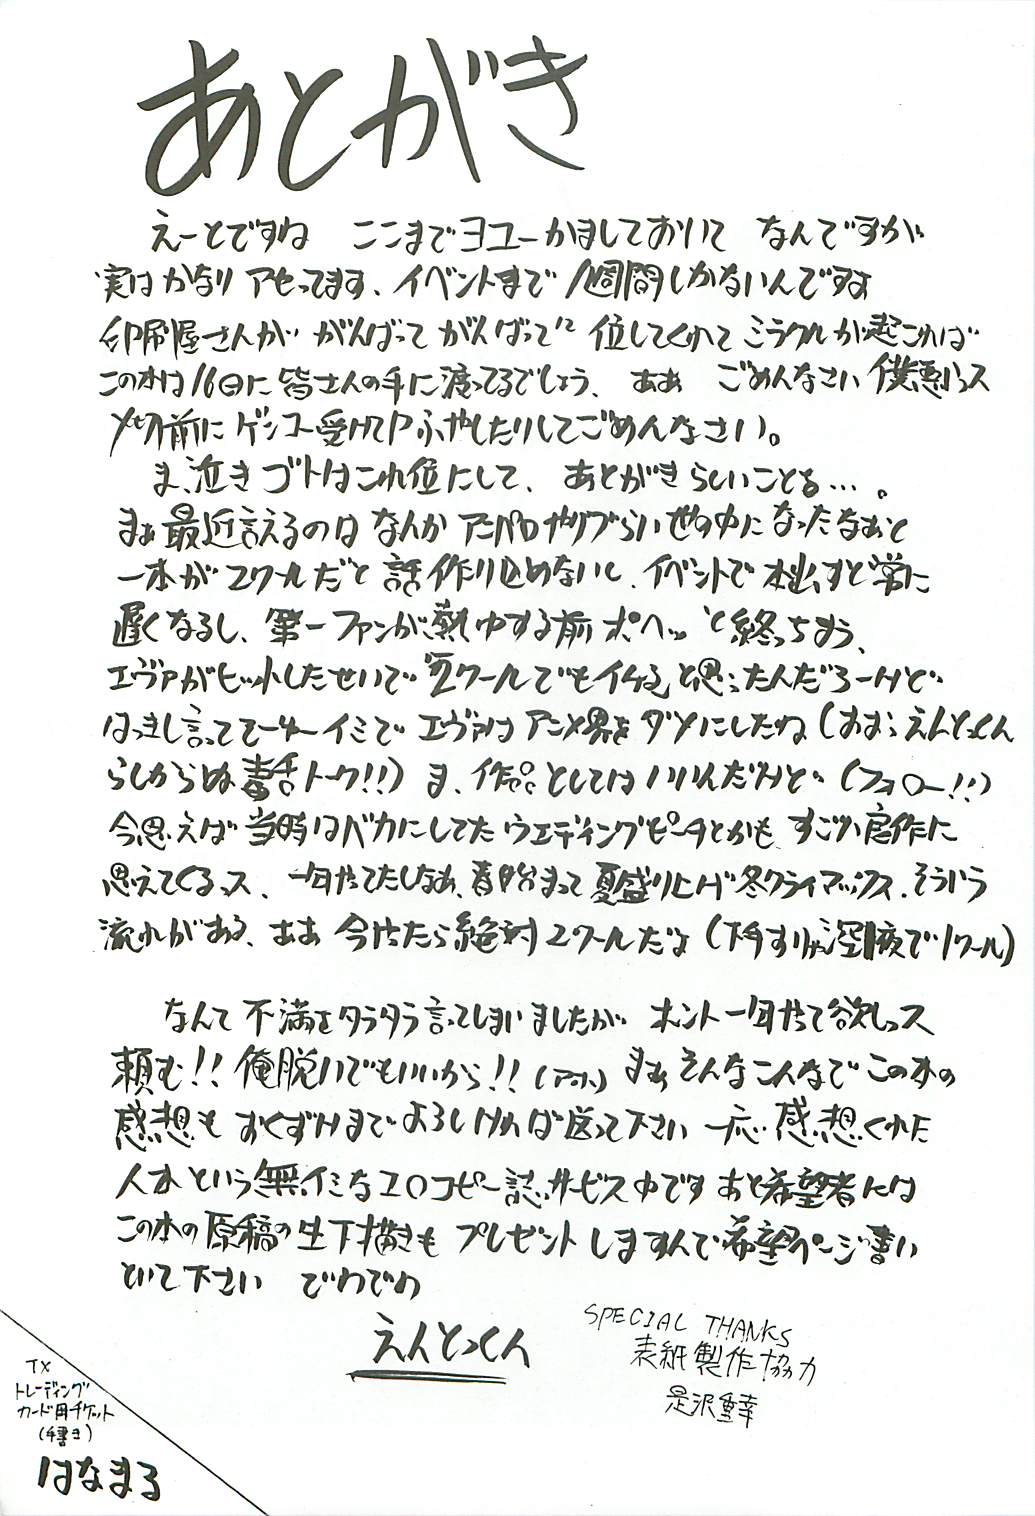 あとがき
えーとですね ここまでヨユーかましておいて なんですが
実はかなり アセってます、イベントまで 1週間しかないんですよ
印刷屋さんが がんばって がんばって 位してくれて ミラクルが起これば
この本は16日に皆さんの手に渡ってるでしょう、ああ ごめんなさい 僕悪いっス
〆切前に ゲンコー受けてPふやしたりしてごめんなさい。
ま、泣きゴトはこれ位にして、あとがきらしいことを…。
まぁ最近言えるのは なんか アニパロやりづらい世の中に なったなぁと
一本が2クールだと 話作り込めないし、イベントで 本出すと常に
遅くなるし、第一ファンが熱中する前 ポヘッ と終っちまう、
エヴァがヒットしたせいで "2クールでもイケる" と思ったんだろーけど
はっきし言って そーゆーイミで エヴァは アニメ界を ダメにしたね (おおっ えんとっくん
らしからぬ 毒舌トーク!!) ま、作品としては いいんだけど (フォロー!!)
今思えば 当時はバカにしてた ウエディングピーチとかも すごい名作に
思えてくるっス、一年やってたしなぁ、春始まって 夏盛り上げ 冬クライマックス、そういう
流れがある、ああ 今やったら絶対 2クールだよ (下手すりゃ深夜で1クール)
なんて 不満を タラタラ 言ってしまいましたが ホント 一年やって欲しっス
頼む!! 俺脱いでもいいから!! (アホ) まぁ そんなこんなで この本の
感想も おくずけまで よろしければ送って下さい 一応 感想くれた
人が という無イミな エロコピー誌サービス中です あと希望者には
この本の 原稿の 生下描きも プレゼント しますんで 希望ページ書い
といて下さい でわでわ
えんとっくん
SPECIAL THANKS
表紙製作協力
是沢重幸
TX
トレーディング
カード用チケット
(手書き)
はなまる